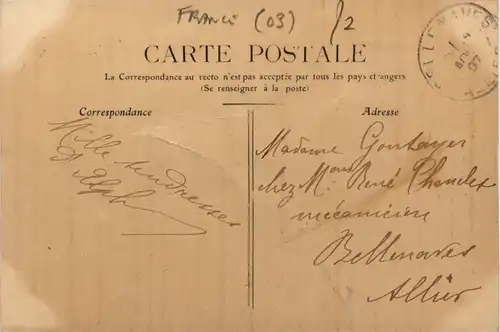 FRANCE (03)
/2
CARTE POSTALE
La Correspondance au recto n'est pas acceptée par tous les pays étrangers.
(Se renseigner à la poste)
Correspondance
Mille tendresses
Adresse
Madame Goutayer
chez Mons René
mécanicien
Bellenaves
Allier